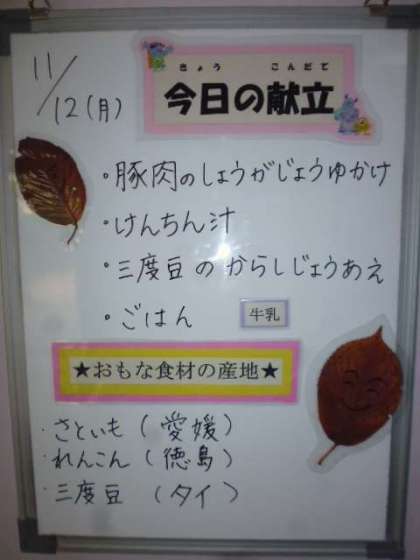 11/12(月)
きょう こんだて
今日の献立
・豚肉のしょうがじょうゆかけ
・けんちん汁
・三度豆のからしじょうあえ
・ごはん 牛乳
★おもな食材の産地★
・さといも(愛媛)
・れんこん(徳島)
・三度豆(タイ)